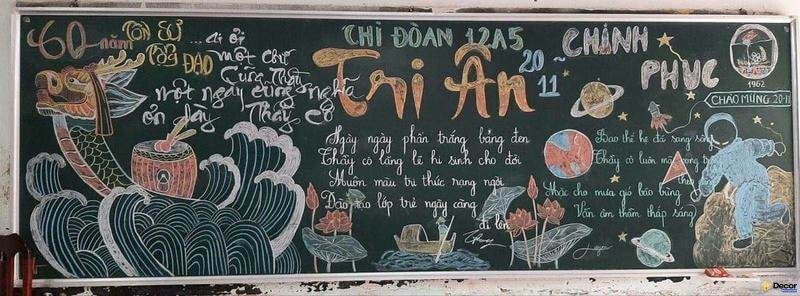 60 năm
TÔN SƯ
TRỌNG ĐẠO
... ai ơi
một chữ
cũng thầy
một ngày cũng nghĩa
ơn dày Thầy Cô
CHI ĐOÀN 12A5
Tri Ân
20
11
~
CHINH
PHỤC
1962
CHÀO MỪNG 20-11
Ngày ngày phấn trắng bảng đen
Thầy cô lặng lẽ hi sinh cho đời
Muôn màu tri thức rạng ngời
Đào tạo lớp trẻ ngày càng
đi lên
Bao thế hệ đã sang sông
Thầy cô luôn mãi
Mặc cho mưa gió bão bùng
Vẫn âm thầm thắp sáng
Decor